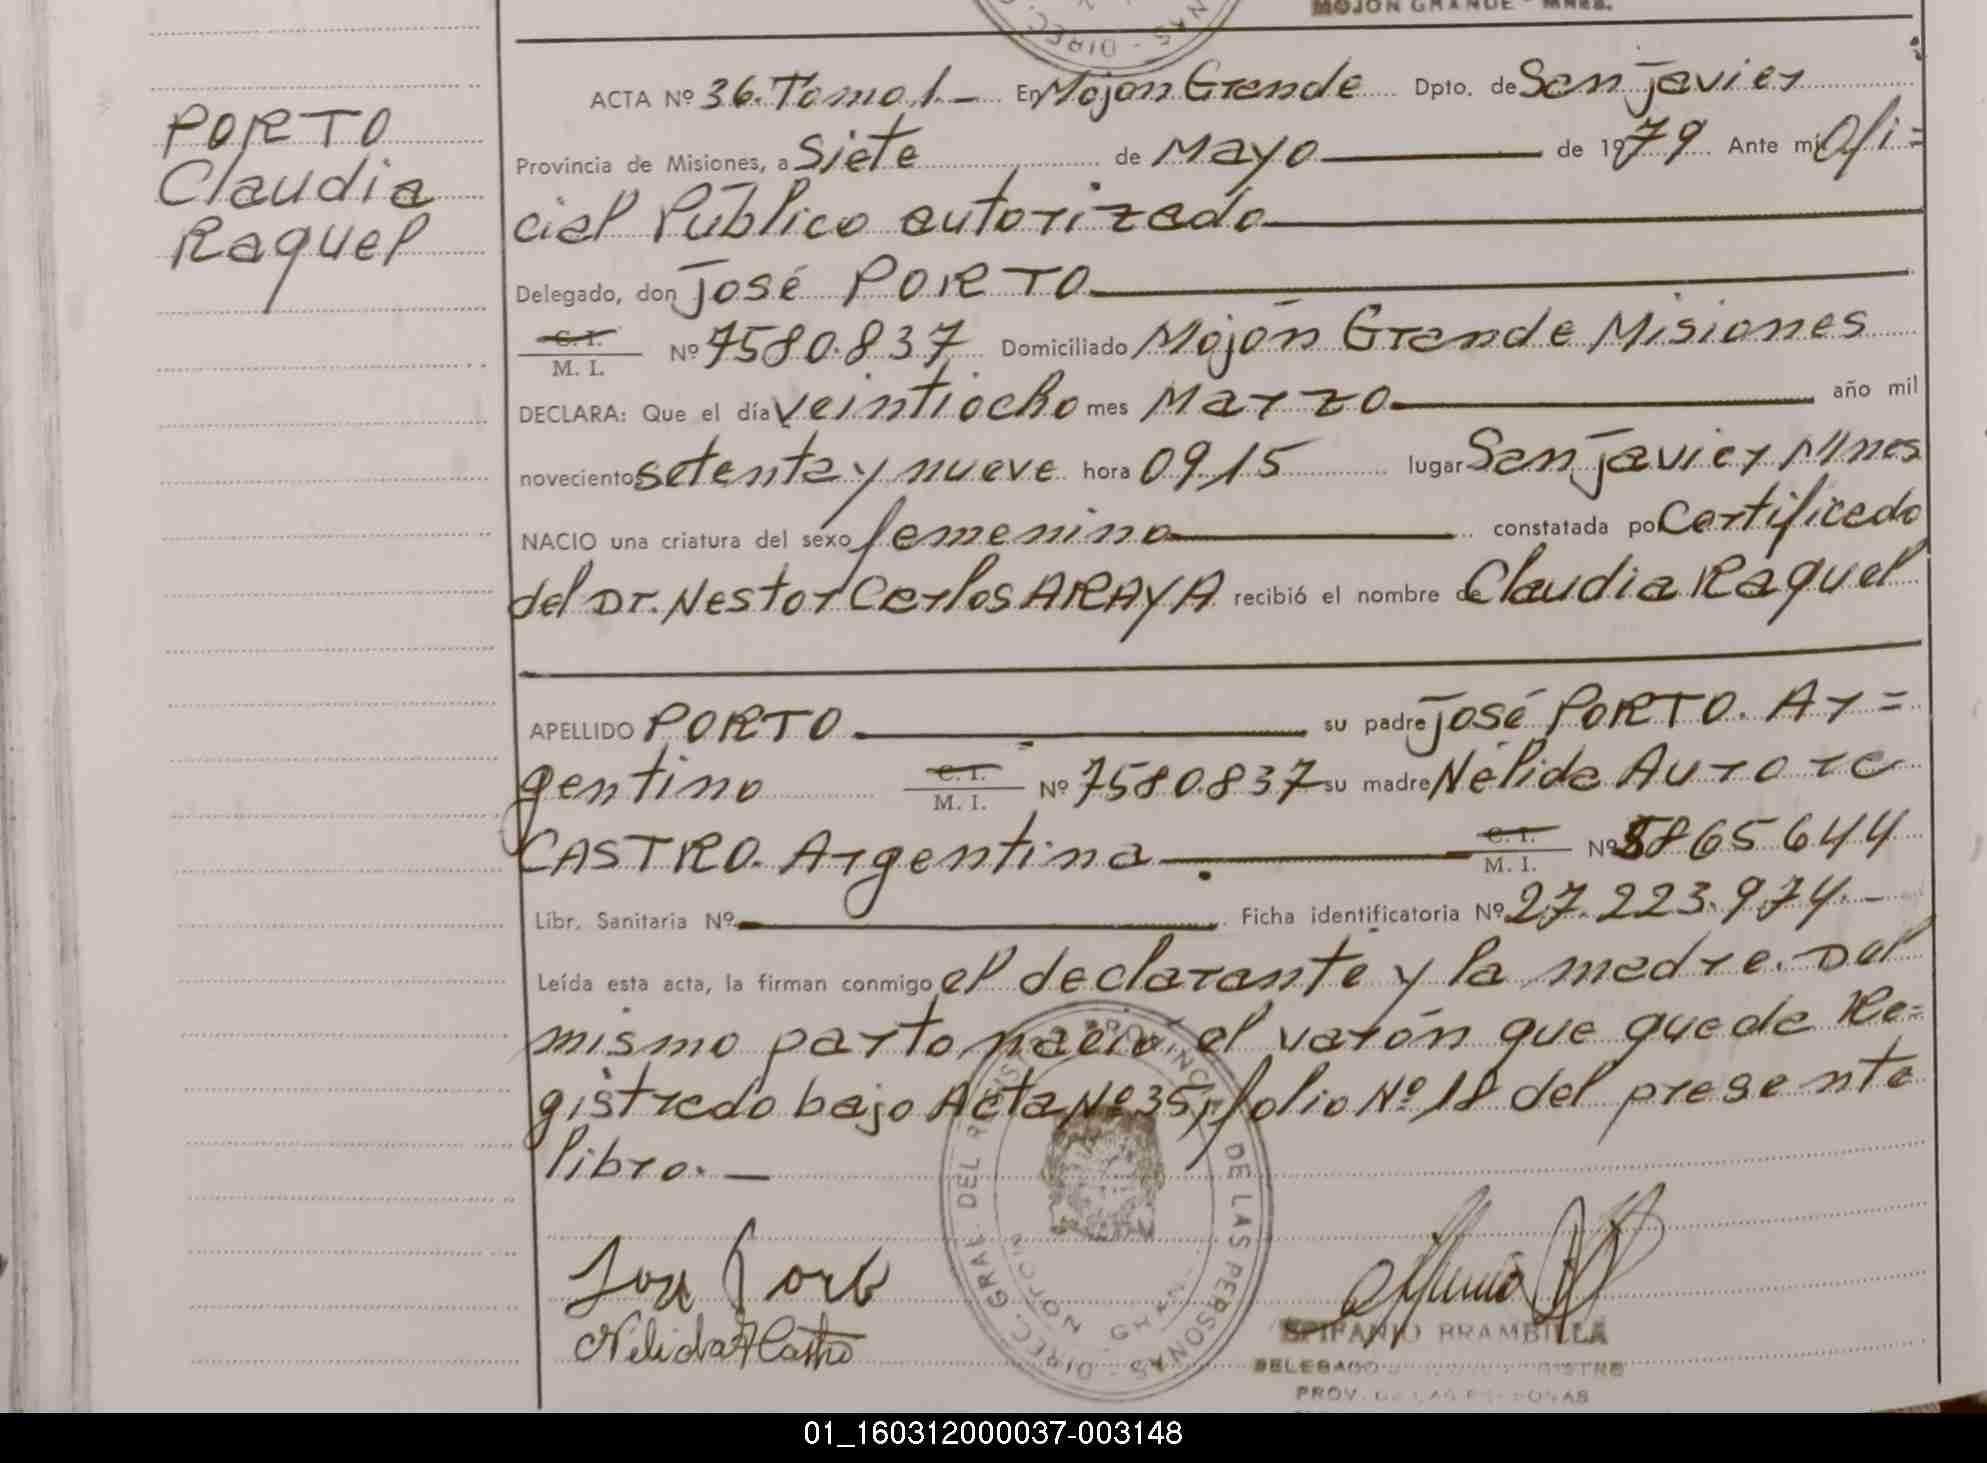 MOJON GRANDE - MNES.
PORTO
Claudia
Raquel
ACTA Nº 36. Tomo 1. — En Mojon Grande Dpto. de San Javier
Provincia de Misiones, a Siete de Mayo de 1979 Ante mi Ofi=
cial Público autorizado
Delegado, don José PORTO
C. I.
M. I. Nº 7580.837 Domiciliado Mojón Grande Misiones
DECLARA: Que el día veintiocho mes Marzo año mil
novecientos setenta y nueve hora 09,15 lugar San Javier Mnes
NACIO una criatura del sexo femenino constatada por Certificado
del Dr. Nestor Carlos ARAYA recibió el nombre de Claudia Raquel
APELLIDO PORTO su padre José PORTO. Ar=
gentino C. I. M. I. Nº 7580.837 su madre Nélida Aurora
CASTRO. Argentina C. I. M. I. Nº 5865644
Libr. Sanitaria Nº Ficha identificatoria Nº 27.223.974.—
Leída esta acta, la firman conmigo el declarante y la madre. Del
mismo parto nació el varón que queda Re=
gistrado bajo Acta Nº 35, folio Nº 18 del presente
libro. —
DIREC. GRAL. DEL REGIST. PROVINC. DE LAS PERSONAS
MOJON GRAN
Nelida A Castro
EPIFANIO BRAMBILLA
DELEGADO
PROV. DE LAS PERSONAS
01_160312000037-003148